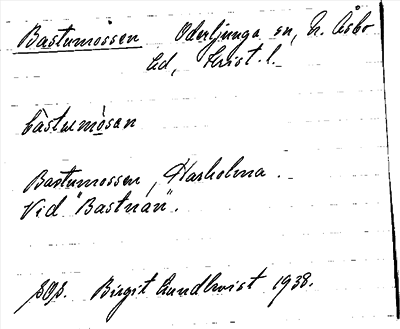 Bastumossen Oderljunga sn, N. Åsbo
hd, Krist. l.
bàstumòsan
Bastumossen, Harholma.
Vid "Bastnan".
Birgit Lundkvist 1938.